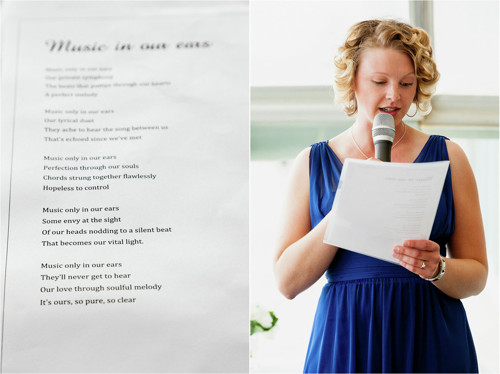 Music in our ears
Music only in our ears
Our private symphony
The beats that pumps through our hearts
A perfect melody
Music only in our ears
Our lyrical duet
They ache to hear the song between us
That's echoed since we've met
Music only in our ears
Perfection through our souls
Chords strung together flawlessly
Hopeless to control
Music only in our ears
Some envy at the sight
Of our heads nodding to a silent beat
That becomes our vital light.
Music only in our ears
They'll never get to hear
Our love through soulful melody
It's ours, so pure, so clear